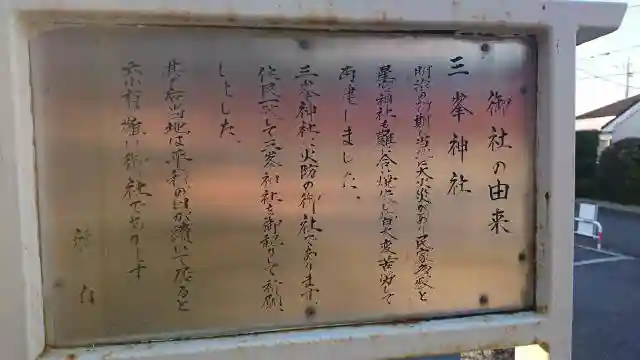 御社の由来
三峯神社
明治の初期当地に大火災があり民家数段と
黒〆神社も難に合い焼失し皆大変苦労して
再建しました。
三峯神社は火防の御社であります。
住民一致して三峯神社を御祀りして祈願
しました。
其の后当地は平和の日が続いて居ると
云ふ有難い御社であります